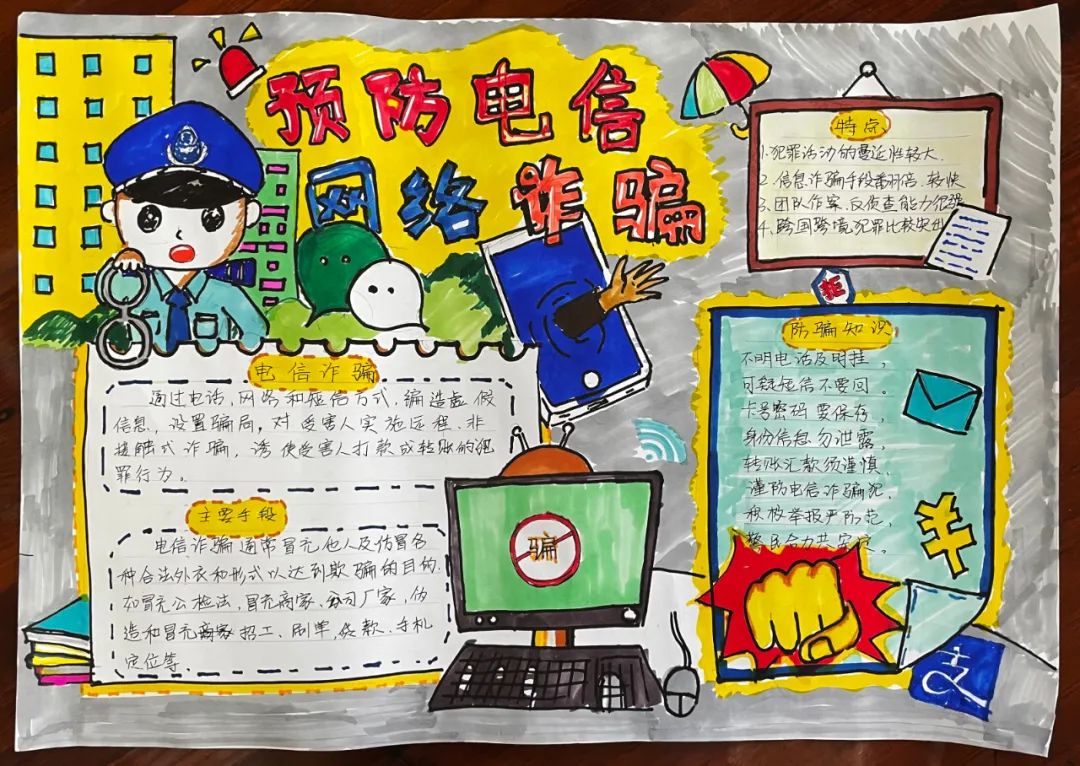 预防电信
网络诈骗
特点
1.犯罪活动的蔓延性较大.
2.信息诈骗手段翻新倍.较快
3.团队作案,反侦查能力很强
4.跨国跨境犯罪比较突出
拒
电信诈骗
通过电话,网络和短信方式,编造虚假
信息,设置骗局,对受害人实施远程、非
接触式诈骗,诱使受害人打款或转账的犯
罪行为。
主要手段
电信诈骗通常冒充他人及仿冒各
种合法外衣和形式以达到欺骗的目的.
如冒充公检法,冒充商家、公司厂家,伪
造和冒充商家招工、刷单、贷款、手机
定位等.
骗
防骗知识
不明电话及时挂,
可疑短信不要回。
卡号密码要保存,
身份信息勿泄露,
转账汇款须谨慎,
谨防电信诈骗犯,
积极举报严防范,
警民合力共安定。
支